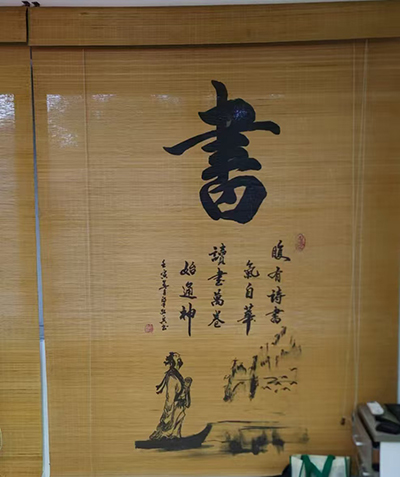 書
腹有詩書
氣自華
讀書萬卷
始通神